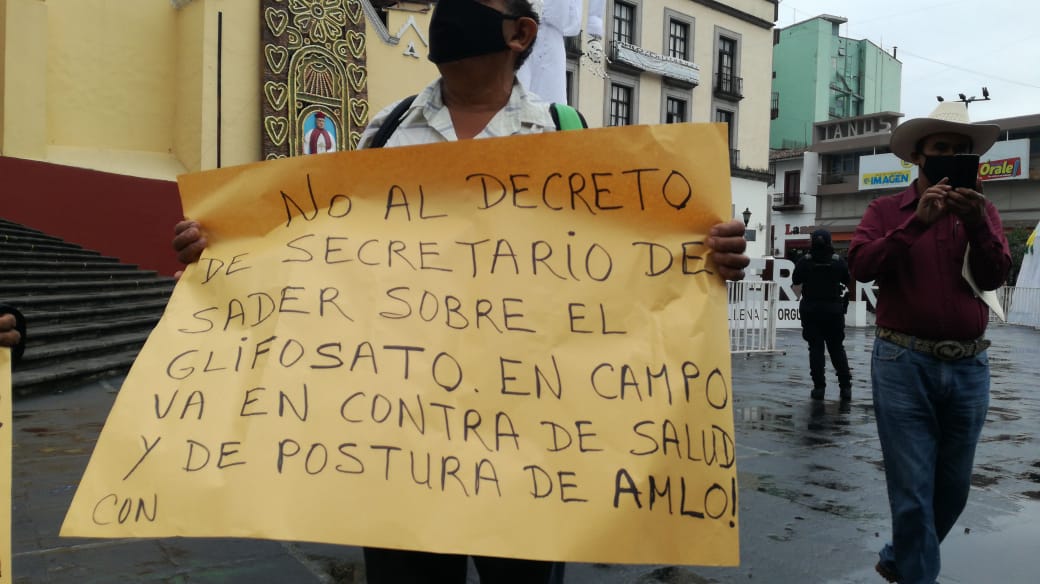 NO AL DECRETO
DE SECRETARIO DE
SADER SOBRE EL
GLIFOSATO. EN CAMPO
VA EN CONTRA DE SALUD
Y DE POSTURA DE AMLO!
CON
TANUS
IMAGEN
Orale
LLENA DE ORGU